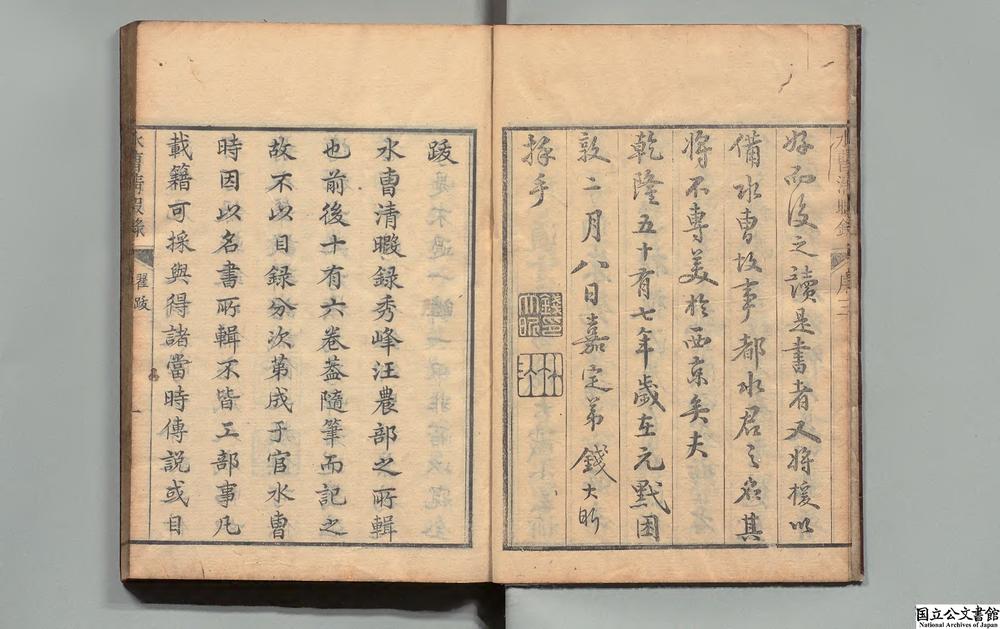 好而後之讀是書者又將援以
備水曹故事都水君之名其
將不專美於西京矣夫
乾隆五十有七年歲在元黓困
敦二月八日嘉定弟錢大昕
拜手
錢印大昕
水曹清暇錄
跋
水曹清暇録秀峰汪農部之所輯
也前後十有六卷蓋隨筆而記之
故不以目録分次第成于官水曹
時因以名書所輯不皆工部事凡
載籍可採與得諸當時傳説或目
水曹清暇錄
翟跋
一
国立公文書館
National Archives of Japan